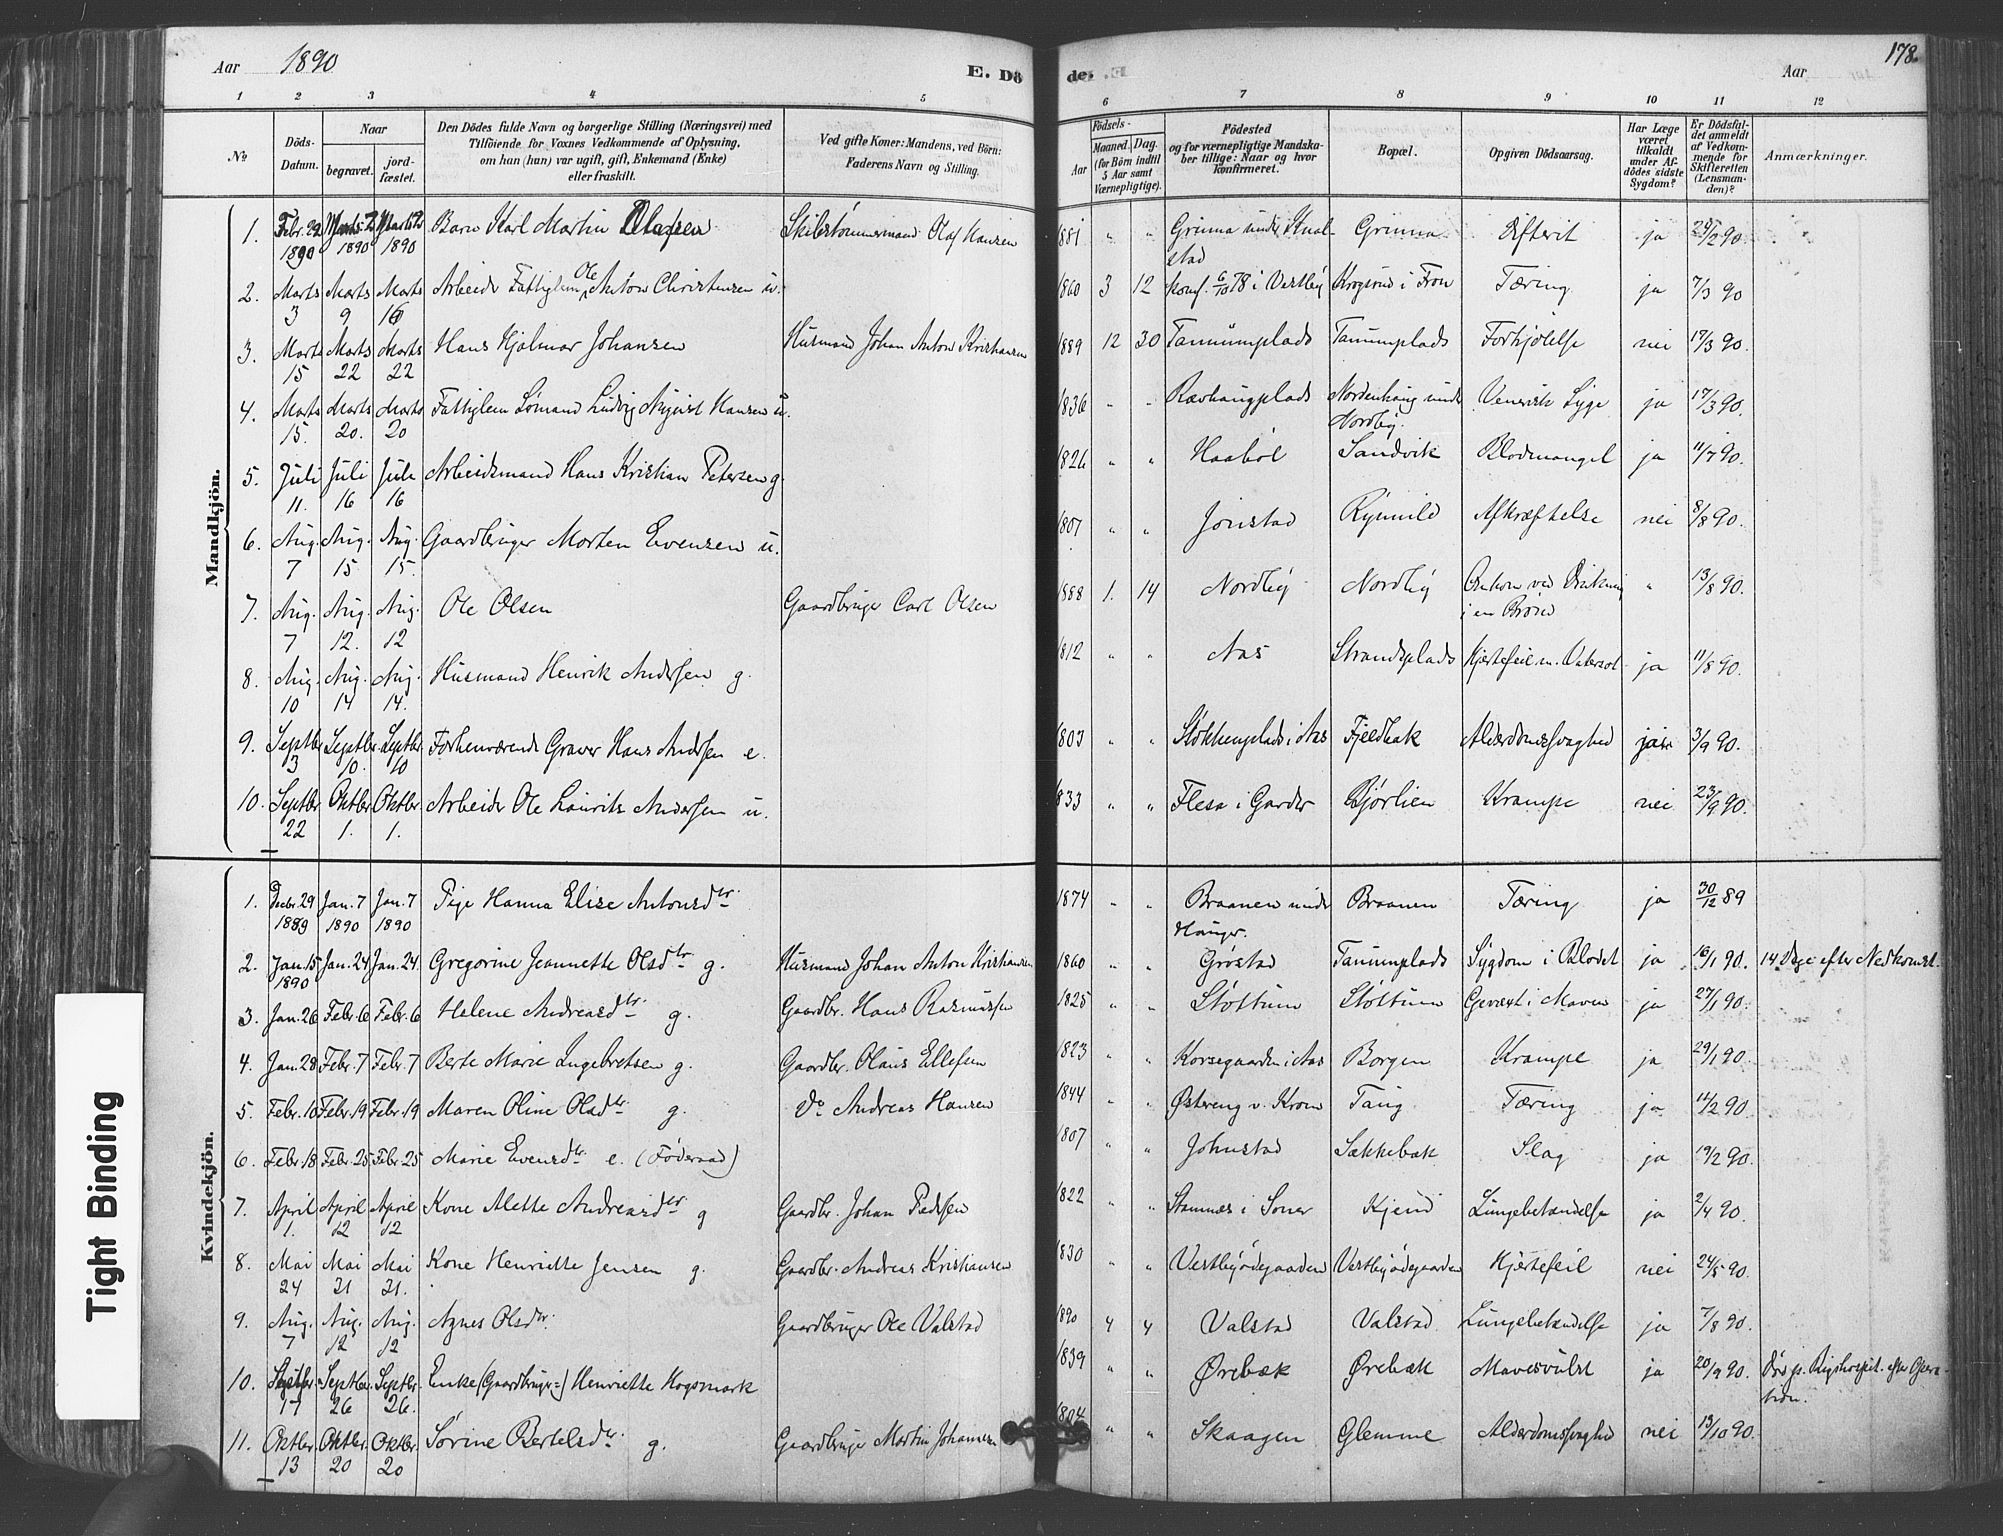 Aar 1890 E. Döde. Aar 178.
1 2 3 4 5 6 7 8 9 10 11 12
No.
Döds-Datum.
Naar
begravet.
jord-fæstet.
Den Dödes fulde Navn og borgerlige Stilling (Næringsvei) med
Tilföiende for Voxnes Vedkommende af Oplysning,
om han (hun) var ugift, gift, Enkemand (Enke)
eller fraskilt.
Ved gifte Koner: Mandens, ved Börn:
Faderens Navn og Stilling.
Födsels-
Aar
Maaned. Dag.
(for Börn indtil
5 Aar samt
Værnepligtige).
Födested
og for værnepligtige Mandska-
ber tillige: Naar og hvor
konfirmeret.
Bopæl.
Opgiven Dödsaarsag.
Har Læge
været
tilkaldt
under Af-
dödes sidste
Sygdom?
Er Dödsfal-
det anmeldt
af Vedkom-
mende for
Skifteretten
(Lensman-
den)?
Anmærkninger.
Mandkjön.
1. Febr. 22 1890 Marts 2 1890 Marts 2 1890 Barn Karl Martin Olafsen Skibstömmermand Olaf Hansen 1881 " " Grinna under Knalstad Grinna Æfterit ja 28/2 90.
2. Marts 3 Marts 9 Marts 16 Arbeider Fattiglem Ole Anton Christensen u. 1860 3 12 konf. 6/10 78 i Vestby Krogsrud i Fron Tæring ja 7/3 90
3. Marts 15 Marts 22 Marts 22 Hans Hjalmar Johansen Husmand Johan Anton Kristiansen 1889 12 30 Tanumplads Tanumplads Forkjølelse nei 17/3 90.
4. Marts 15. Marts 20. Marts 20 Fattiglem Sømand Ludvig August Hansen u. 1836 " " Ravhaugplads Nordenhaug under Nordby. Venerisk Syge ja 17/3 90.
5. Juli 11. Juli 16 Juli 16 Arbeidsmand Hans Kristian Petersen g. 1826 " " Haabøl Sandvik Blodmangel ja 11/7 90.
6. Aug. 7 Aug. 15 Aug. 15. Gaardbruger Morten Evensen u. 1807 " " Jonstad Rynnild Afkræftelse nei 8/8 90.
7. Aug. 7 Aug. 12. Aug. 12 Ole Olsen Gaardbruger Carl Olsen 1888 1. 14 Nordby Nordby Omkom ved Drukning i en Brønd " 13/8 90.
8. Aug. 10 Aug. 14 Aug. 14. Husmand Henrik Andersen g. 1812 " " Aas Strandsplads Hjertefeil m. Vatersot ja 11/8 90.
9. Septbr. 3 Septbr. 10. Septbr. 10 Forhenværende Graver Hans Andersen e. 1803 " " Støkkenplads i Aas Fjeldbak Alderdomssvaghed 3/9 90.
10. Septbr. 22 Oktbr. 1. Oktbr. 1. Arbeider Ole Laurits Andersen u. 1833 " " Flesa i Garder Bjørlien Krampe nei 23/9 90.
Kvindekjön.
1. Decbr. 29 1889 Jan. 7 1890 Jan. 7 1890 Pige Hanna Elise Antonsdtr. 1874 " " Braanen under Hauger. Braanen Tæring ja 30/12 89
2. Jan. 15 1890 Jan. 24 Jan. 24. Gregorine Jeannette Olsdtr. g. Husmand Johan Anton Kristiansen 1860 " " Grøstad Tanumplads Sygdom i Blodet ja 16/1 90. 14 Dage efter Nedkomst.
3. Jan. 26 Febr. 6 Febr. 6 Helene Andreasdtr. g. Gaardbr. Hans Rasmussen 1825 " " Støttum Støttum Gevæxt i Maven ja 27/1 90.
4. Jan. 28 Febr. 7 Febr. 7 Berte Marie Ingebretsen g. Gaardbr. Olaus Ellefsen 1823 " " Korsegaarden i Aas Borgen Krampe ja 29/1 90.
5. Febr. 10 Febr. 19 Febr. 19 Maren Oline Olsdtr. g. Do Andreas Hansen 1844 " " Østereng v. Kroer Taug Tæring ja 14/2 90.
6. Febr. 18 Febr. 25 Febr. 25 Marie Evensdtr. e. (Føderaad) 1807 " " Johnstad Sækkebæk Slag ja 19/2 90.
7. April 1. April 12 April 12 Kone Alette Andreasdtr. g Gaardbr. Johan Pedersen 1822 " " Stamnæs i Soner Kjend Lungebetændelse ja 2/4 90.
8. Mai 24 Mai 31 Mai 31. Kone Henriette Jensen g. Gaardbr. Andreas Kristiansen 1830 " " Vestbyødegaarden Vestbyødegaarden Hjertefeil nei 24/5 90.
9. Aug. 7 Aug. 12 Aug. 12 Agnes Olsdtr. Gaardbruger Ole Valstad 1890 4 4 Valstad Valstad Lungebetændelse ja 7/8 90.
10. Septbr. 17 Septbr. 26 Septbr. 26. Enke (Gaardbruger=) Henriette Hogsmark 1839 " " Ørebæk Ørebæk Mavesvulst ja 20/9 90. Død p. Rigshospit. efter Operation.
11. Oktbr. 13 Oktbr. 20 Oktbr. 20 Sørine Bertelsdtr. g. Gaardbruger Martin Johannesen 1804 " " Skaagen Glemme Alderdomssvaghed nei 13/10 90.
Tight Binding